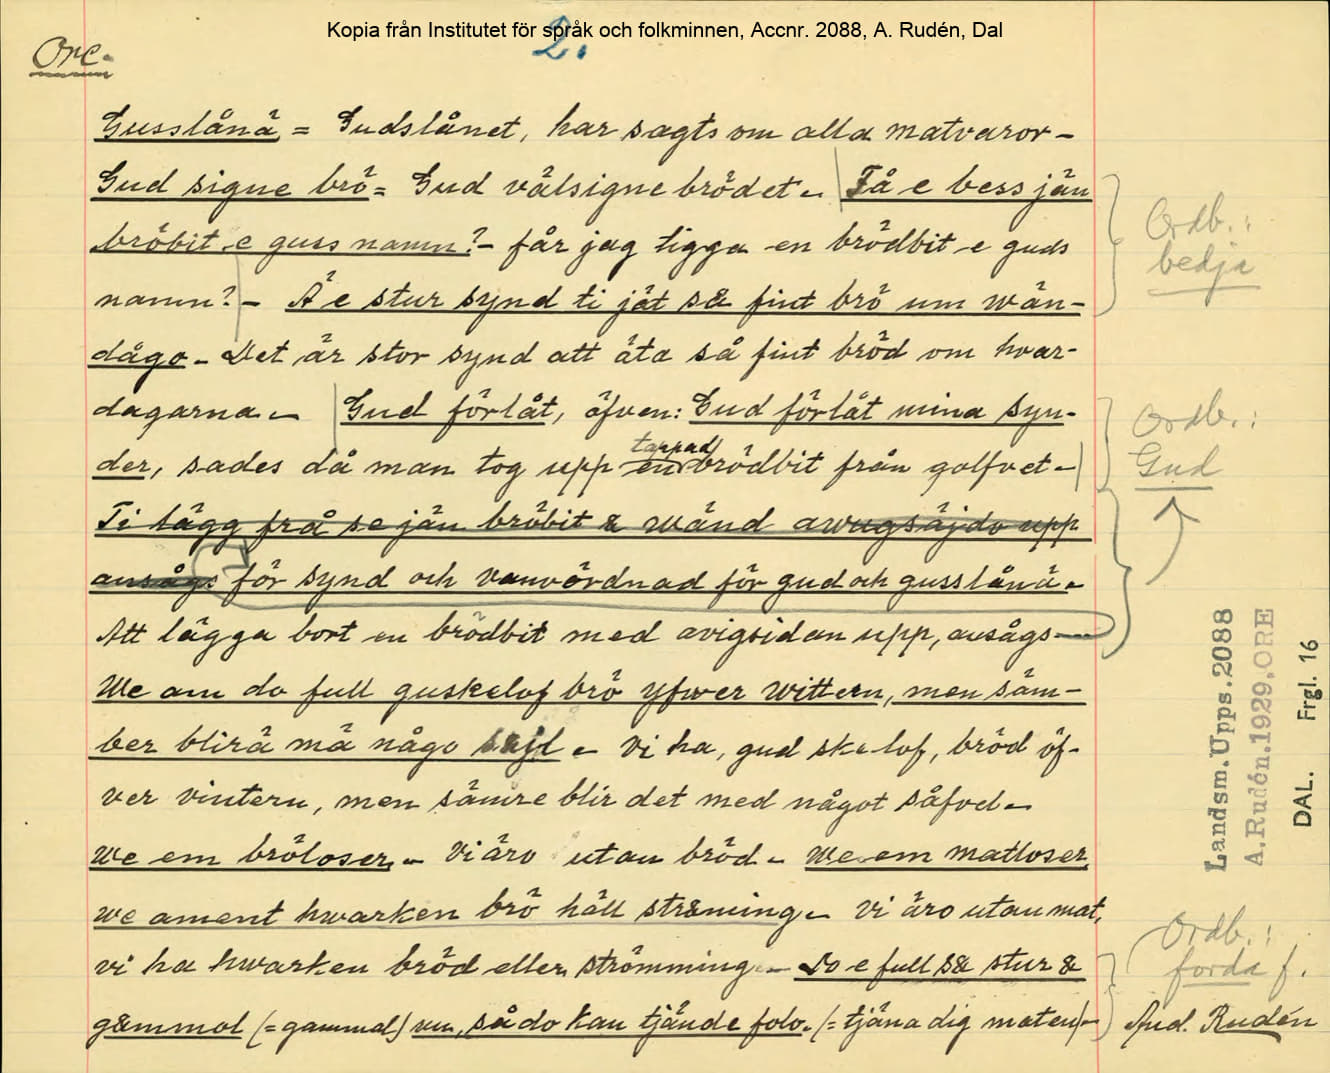 Kopia från Institutet för språk och folkminnen, Accnr. 2088, A. Rudén, Dal
2.
Ore.
Gusslånä = Gudslånet, har sagts om alla matvaror –
Gud signe brö = Gud välsigne brödet – Få e bess jän
bröbit e guss namn? – får jag tigga en brödbit e guds
namn? – Ä e stur synd ti jät så fint brö um wän-
dågo – Det är stor synd att äta så fint bröd om hvar-
dagarna – Gud förlåt, öfven: Gud förlåt mina syn-
der, sades då man tog upp en tappad brödbit från golfvet –
Ti lägg frå se jän bröbit & wänd awugsäjdo upp
ansågs för synd och vanvördnad för gud och gusslånä –
Att lägga bort en brödbit med avigsidan upp, ansågs
We am do full guskelof brö yfwer wittern, men säm-
ber blirä mä någo – Vi ha, gud ske lof, bröd öf-
ver vintern, men sämre blir det med något såfvel –
We em bröloser – Vi äro utan bröd – We em matloser
we ament hwarken brö häll strömming – Vi äro utan mat,
vi ha hwarken bröd eller strömming – Do e full så stur &
gammol (= gammal) nu, så do kan tjände folo. (= tjäna dig maten) –
Ordb.:
bedja
Ordb.:
Gud
Landsm.Upps.2088
A.Rudén.1929.ORE
DAL. Frgl. 16
Ordb.:
forda f.
And. Rudén